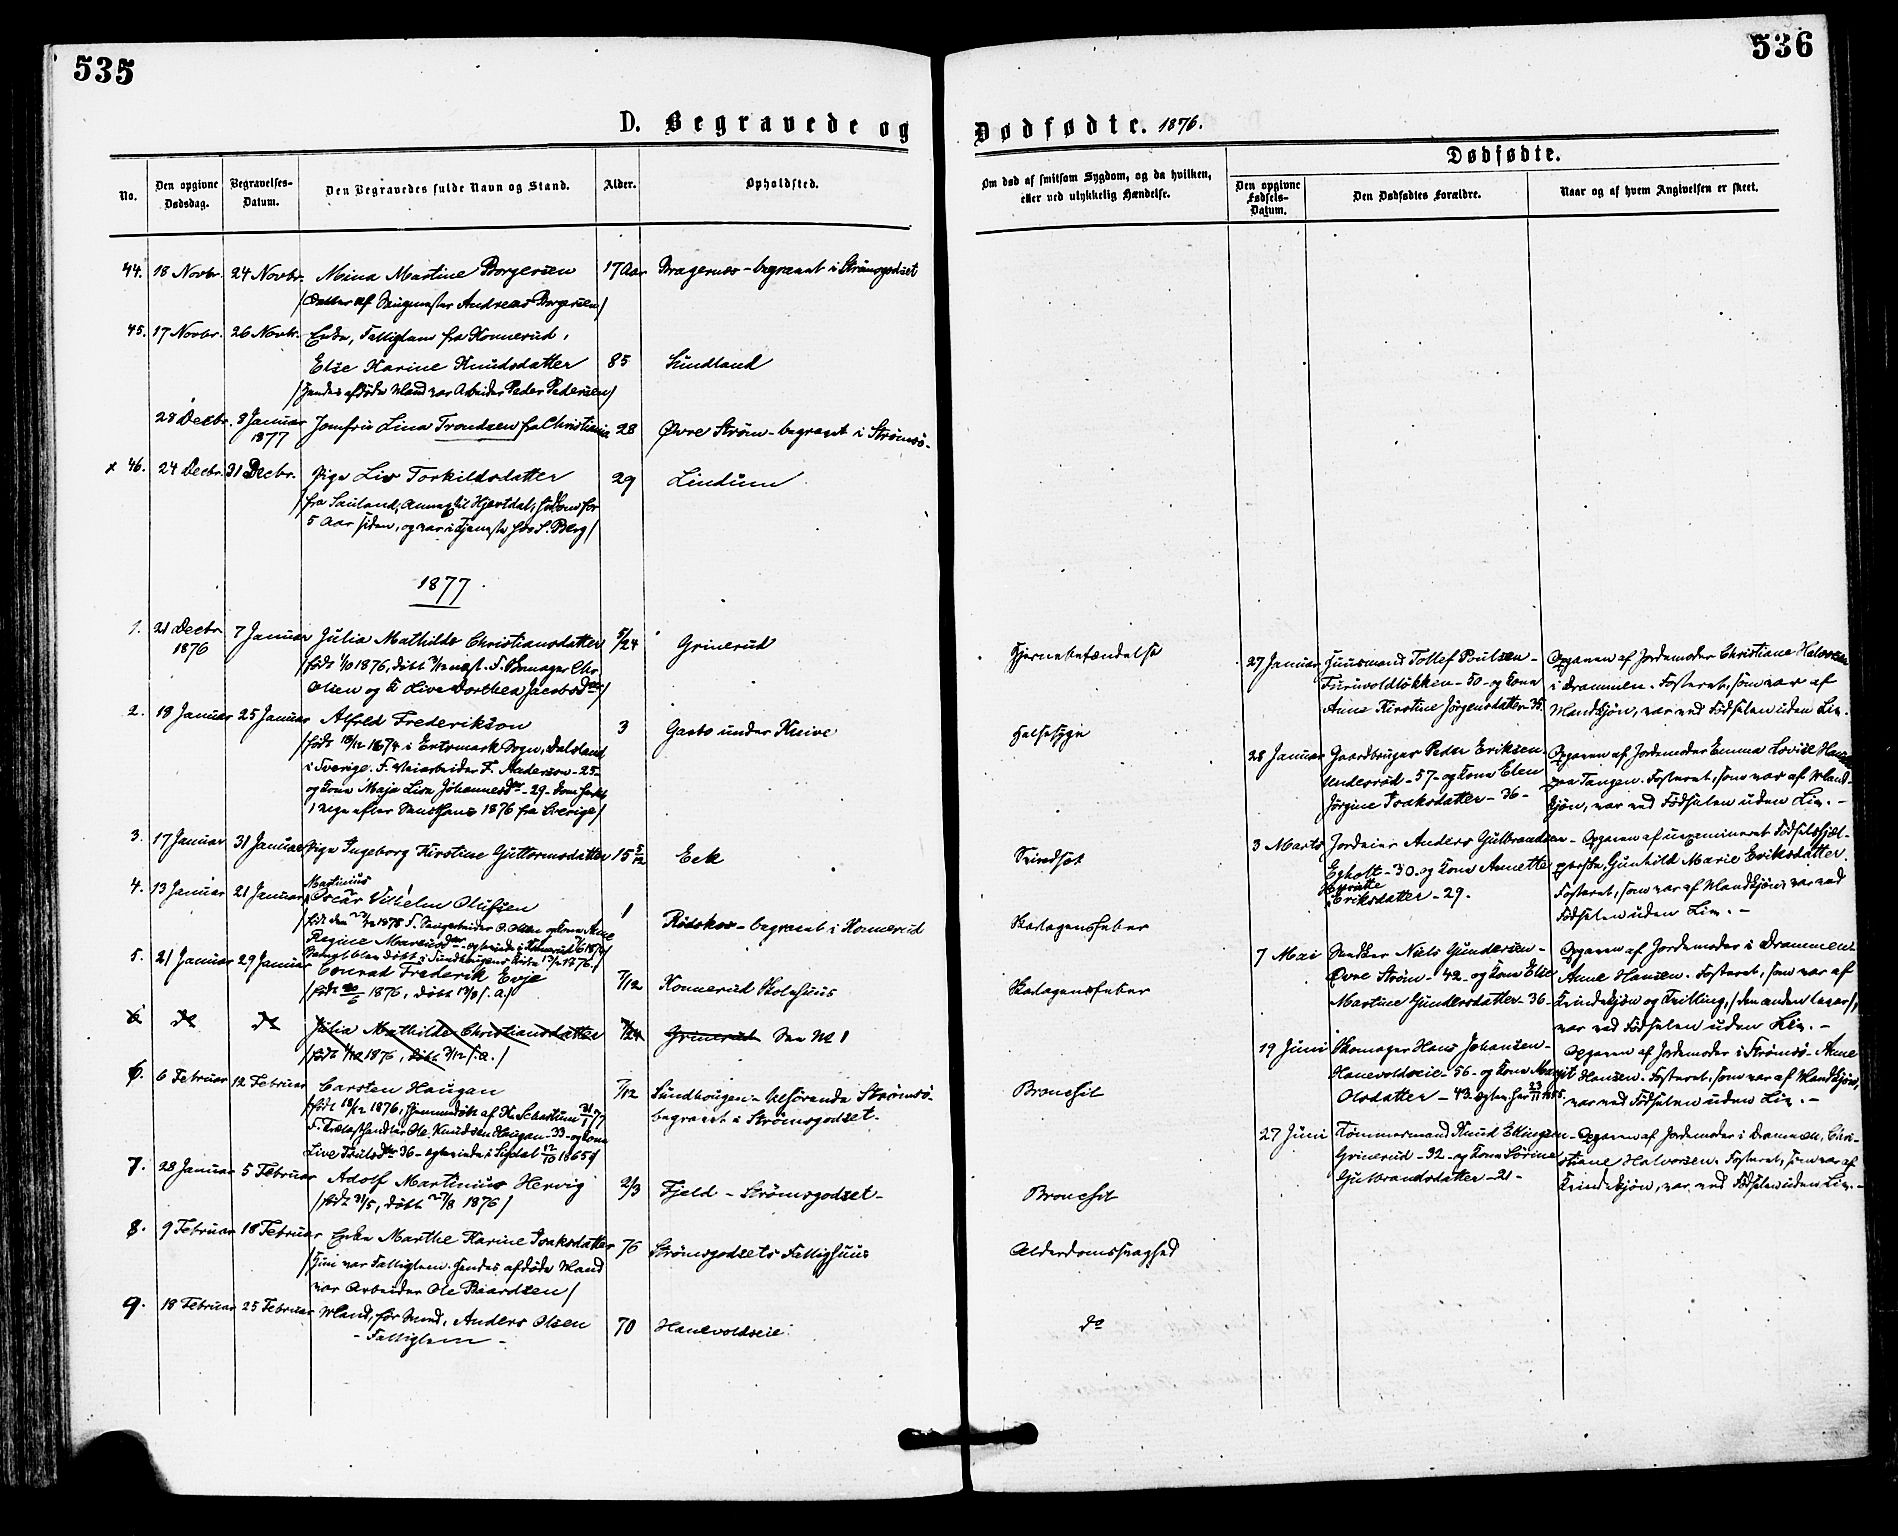 535
536
D. Begravede og Dødfødte. 1876.
No.
Den opgivne Dødsdag.
Begravelses-Datum.
Den Begravedes fulde Navn og Stand.
Alder.
Opholdsted.
Om død af smitsom Sygdom, og da hvilken, eller ved ulykkelig Hændelse.
Dødfødte.
Den opgivne Fødsels-Datum.
Den Dødfødtes Forældre.
Naar og af hvem Angivelsen er skeet.
44. 18 Novbr. 24 Novbr. Mina Martine Borgersen 17 Aar Bragernes - begravet i Strømsgodset
/Datter af Saugmester Andreas Borgersen/
45. 17 Novbr. 26 Novbr. Enke, Fattiglem fra Konnerud,
Else Karine Knudsdatter 85 Sundland
/hendes afdøde Mand var Arbeider Peder Pedersen/
28 Decbr. 8 Januar Jomfru Lina Trondsen fra Christiania 28 Øvre Strøm - begravet i Strømsø -
1877
x 46. 24 Decbr. 31 Decbr. Pige Liv Torkildsdatter 29 Lindum
/fra Sauland, Annex til Hjertdal, hidkom for
5 Aar siden, og var i Tjeneste hos S. Berg/
1877
1. 21 Decbr. 7 Januar Julia Mathilde Christiansdatter 5/24 Grinerud Hjernebetændelse
1876 /født 1/10 1876, døbt 3/12 næst. F. Skomager Chr.
Olsen og K Live Dorthea Jacobsdtr/
2. 18 Januar 25 Januar Alfred Frederikson 3 Gaserud under Kleive Halsesyge
/født 18/12 1874 i Sogn, Dalsland
i Sverige. F. Veiarbeider F. Anderson - 25 -
og Kone Maja Lisa Johannesdtr - 29 - kom hertil
1 Uge efter Sanct Hans 1876 fra Sverige/
3. 17 Januar 31 Januar Pige Ingeborg Kirstine Guttormsdatter 15 5/12 Eek Vindsot
4. 13 Januar 21 Januar Martinius
Oscar Vilhelm Olufsen 1 Rødskog - begravet i Konnerud Skarlagensfeber
Regine
5. 21 Januar 29 Januar Conrad Frederik Evje 7/12 Konnerud Skolehuus Skarlagensfeber
/født 20/6 1876, døbt 13/8 s. a./
6 do do Julia Mathilde Christiansdatter 5/24 Grinerud See No 1
/født 1/10 1876, døbt 3/12 s. a./
6. 6 Februar 12 Februar Carsten Haugan 7/12 Sundhaugen - Tilhørende Strømsø - Bronchit
begravet i Strømsgodset.
F. Trælasthandler Ole Knudsen Haugan - 33 - og Kone
Live - 36 - egteviede i Sigdal 12/10 1865/
7. 28 Januar 5 Februar Adolf Martinius Hervig 2/3 Fjeld - Strømsgodset - Bronchit
/født 31/5, døbt 27/8 1876/
8. 9 Februar 18 Februar Enke Marthe Karine Isaksdatter 76 Strømsgodsets Fattighuus Alderdomssvaghed
/hun var Fattiglem. Hendes afdøde Mand
var Arbeider Ole Baardsen/
9. 18 Februar 25 Februar Mand, før Smed, Anders Olsen 70 Hanevoldseie do
- Fattiglem -
27 Januar Huusmand Tollef Poulsen -
Furuvoldløkken - 50 - og Kone
Anne Kirstine Jørgensdatter - 35.
Opgaven af Jordemoder Christiane Halvorsen
i Drammen. Fosteret, som var af
Mandkjøn, var ved Fødselen uden Liv.
28 Januar Gaardbruger Peder Eriksen
Underrud - 57 - og Kone Elen
Jørgine Isaksdatter - 36 -
Opgaven af Jordemoder Emma Lovise Hansen
paa Tangen. Fosteret, som var af Mand-
kjøn, var ved Fødselen uden Liv. -
3 Marts Jordeier Anders Gulbrandsen
Egholt - 30 - og Kone Annette
Henriette
Eriksdatter - 29.
Opgaven af uexamineret Fødselshjæl-
perske Gunhild Marie Eriksdatter.
Fosteret, som var af Mandkjøn, var ved
Fødselen uden Liv. -
7 Mai Snedker Niels Gundersen -
Øvre Strøm - 42 - og Kone Else
Martine Gundersdatter - 36 -
Opgaven af Jordemoder i Drammen
Anne Hansen. Fosteret, som var af
Kvindekjøn og Tvilling, /den anden lever/,
var ved Fødselen uden Liv. -
19 Juni Skomager Hans Johansen -
Hanevoldseie - 56 - og Kone Margit
Olsdatter - 43.
Opgaven af Jordemoder i Strømsø - Anne
Hansen. Fosteret, som var af Mandkjøn,
var ved Fødselen uden Liv. -
27 Juni Tømmermand Knud Ellingsen -
Grinerud - 32 - og Kone Sørine
Gulbrandsdatter - 21 -
Opgaven af Jordemoder i Drammen, Chri-
stiane Halvorsen. Fosteret, som var af
Kvindekjøn, var ved Fødselen uden Liv. -